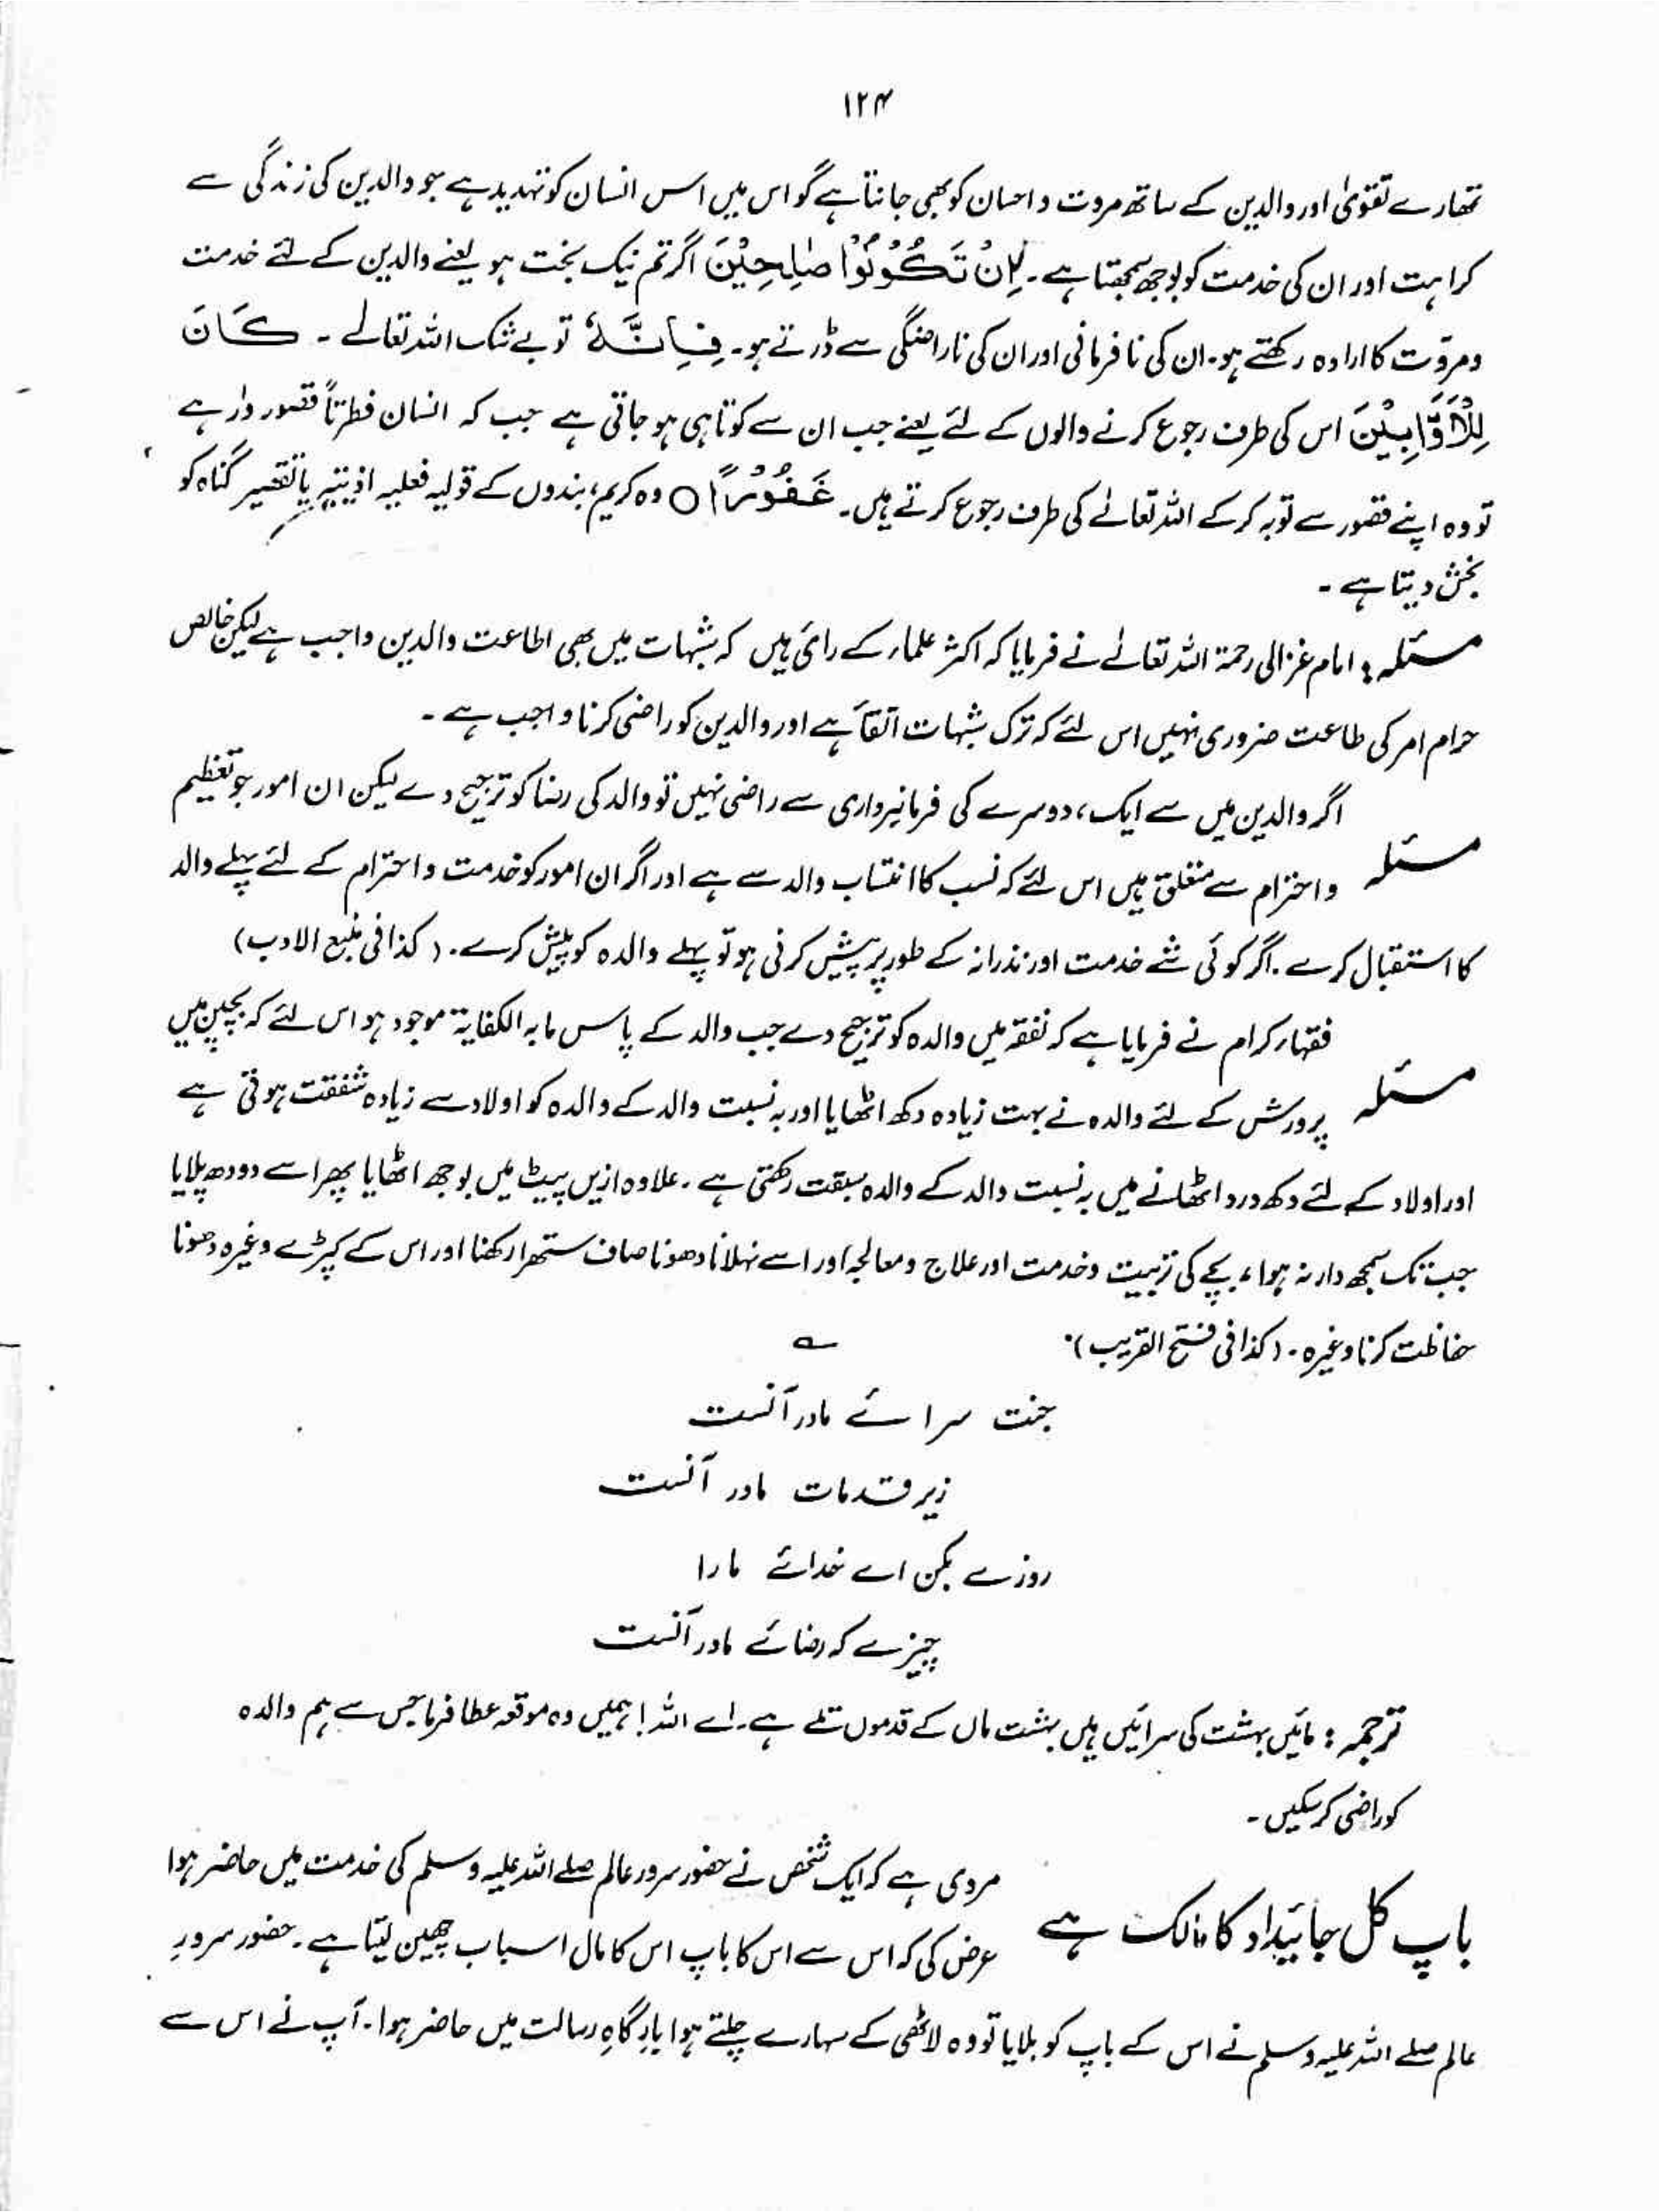 ۱۲۴
تمہارے تقویٰ اور والدین کے ساتھ مروت و احسان کو بھی جانتا ہے گو اس میں اس انسان کو تہدید ہے جو والدین کی زندگی سے
کراہت اور ان کی خدمت کو بوجھ سمجھتا ہے۔ اِنْ تَکُوْنُوْا صٰلِحِیْنَ اگر تم نیک بخت ہو یعنے والدین کے لئے خدمت
و مروّت کا ارادہ رکھتے ہو۔ ان کی نافرمانی اور ان کی ناراضگی سے ڈرتے ہو۔ فَاِنَّہٗ تو بے شک اللہ تعالےٰ ۔ کَانَ
لِلْاَوَّابِیْنَ اس کی طرف رجوع کرنے والوں کے لئے یعنے جب ان سے کوتاہی ہو جاتی ہے جب کہ انسان فطرتاً قصور وار ہے
تو وہ اپنے قصور سے توبہ کر کے اللہ تعالےٰ کی طرف رجوع کرتے ہیں۔ غَفُوْرًا ○ وہ کریم، بندوں کے قولیہ فعلیہ اذیتیہ یا تقصیر گناہ کو
بخش دیتا ہے ۔
مسئلہ : امام غزالی رحمۃ اللہ تعالےٰ نے فرمایا کہ اکثر علماء کے رائ ہیں کہ شبہات میں بھی اطاعت والدین واجب ہے لیکن خالص
حرام امر کی طاعت ضروری نہیں اس لئے کہ ترک شبہات اتقاً ہے اور والدین کو راضی کرنا واجب ہے ۔
اگر والدین میں سے ایک، دوسرے کی فرمانبرداری سے راضی نہیں تو والد کی رضا کو ترجیح دے لیکن ان امور جو تعظیم
مسئلہ و احترام سے متعلق ہیں اس لئے کہ نسب کا انتساب والد سے ہے اور اگر ان امور کو خدمت و احترام کے لئے پہلے والد
کا استقبال کرے ۔ اگر کوئی شئے خدمت اور نذرانہ کے طور پر پیش کرنی ہو تو پہلے والدہ کو پیش کرے ۔ (کذا فی منبع الادب)
فقہاء کرام نے فرمایا ہے کہ نفقہ میں والدہ کو ترجیح دے جب والد کے پاس مابہ الکفایۃ موجود ہو اس لئے کہ بچپن میں
مسئلہ پرورش کے لئے والدہ نے بہت زیادہ دکھ اٹھایا اور بہ نسبت والد کے والدہ کو اولاد سے زیادہ شفقت ہوتی ہے
اور اولاد کے لئے دکھ درد اٹھانے میں بہ نسبت والد کے والدہ سبقت رکھتی ہے ۔ علاوہ ازیں پیٹ میں بوجھ اٹھایا پھر اسے دودھ پلایا
جب تک سمجھ دار نہ ہوا، بچے کی تربیت و خدمت اور علاج و معالجہ اور اسے نہلانا دھونا صاف ستھرا رکھنا اور اس کے کپڑے وغیرہ دھونا
حفاظت کرنا وغیرہ ۔ (کذا فی فتح القریب)۔ ؎
جنت سرائے مادر آنست
زیر قدمات مادر آنست
روزے بکن اے خدائے مارا
چیزے کہ رضائے مادر آنست
ترجمہ : مائیں بہشت کی سرائیں ہیں بہشت ماں کے قدموں تلے ہے ۔ اے اللہ! ہمیں وہ موقعہ عطا فرما جس سے ہم والدہ
کو راضی کر سکیں ۔
باپ کل جائیداد کا مالک ہے مروی ہے کہ ایک شخص نے حضور سرور عالم صلے اللہ علیہ وسلم کی خدمت میں حاضر ہوا
عرض کی کہ اس سے اس کا باپ اس کا مال اسباب چھین لیتا ہے ۔ حضور سرورِ
عالم صلے اللہ علیہ وسلم نے اس کے باپ کو بلایا تو وہ لاٹھی کے سہارے چلتے ہوا بارگاہِ رسالت میں حاضر ہوا ۔ آپ نے اس سے